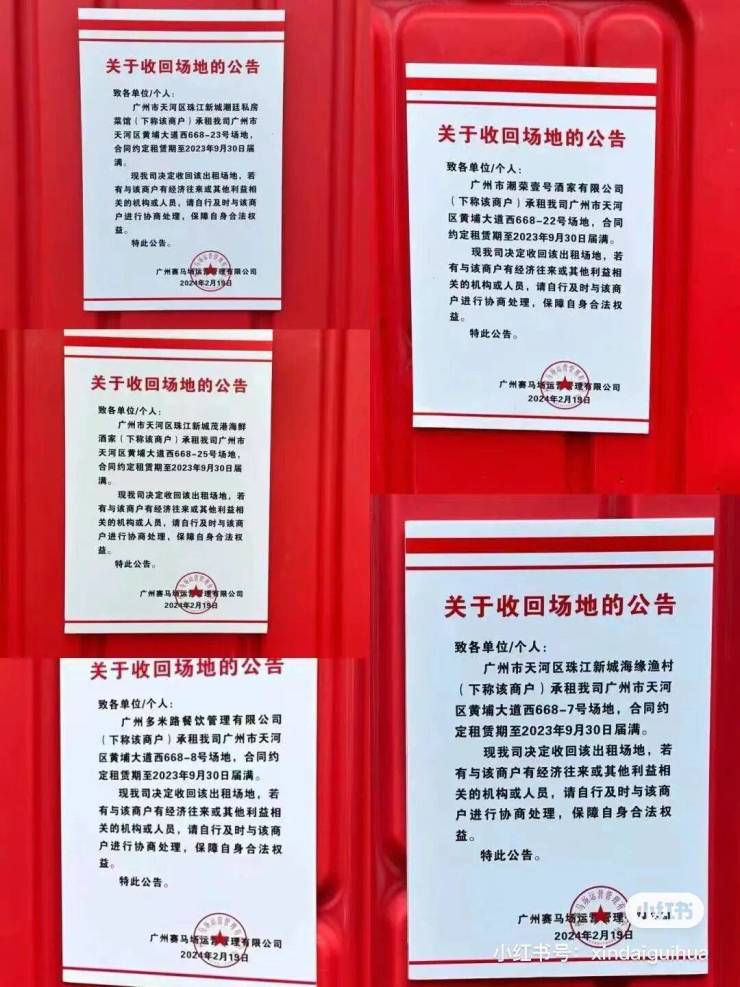 关于收回场地的公告
致各单位/个人：
广州市天河区珠江新城潮廷私房
菜馆（下称该商户）承租我司广州市
天河区黄埔大道西668-23号场地，
合同约定租赁期至2023年9月30日届
满。
现我司决定收回该出租场地，若
有与该商户有经济往来或其他利益相
关的机构或人员，请自行及时与该商
户进行协商处理，保障自身合法权
益。
特此公告。
广州赛马场运营管理有限公司
2024年2月19日
关于收回场地的公告
致各单位/个人：
广州市潮荣壹号酒家有限公司
（下称该商户）承租我司广州市天河
区黄埔大道西668-22号场地，合同
约定租赁期至2023年9月30日届满。
现我司决定收回该出租场地，若
有与该商户有经济往来或其他利益相
关的机构或人员，请自行及时与该商
户进行协商处理，保障自身合法权
益。
特此公告。
广州赛马场运营管理有限公司
2024年2月19日
关于收回场地的公告
致各单位/个人：
广州市天河区珠江新城茂港海鲜
酒家（下称该商户）承租我司广州市
天河区黄埔大道西668-25号场地，
合同约定租赁期至2023年9月30日届
满。
现我司决定收回该出租场地，若
有与该商户有经济往来或其他利益相
关的机构或人员，请自行及时与该商
户进行协商处理，保障自身合法权
益。
特此公告。
广州赛马场运营管理有限公司
2024年2月19日
关于收回场地的公告
致各单位/个人：
广州多米路餐饮管理有限公司
（下称该商户）承租我司广州市天河
区黄埔大道西668-8号场地，合同约
定租赁期至2023年9月30日届满。
现我司决定收回该出租场地，若
有与该商户有经济往来或其他利益相
关的机构或人员，请自行及时与该商
户进行协商处理，保障自身合法权
益。
特此公告。
广州赛马场运营管理有限公司
2024年2月19日
关于收回场地的公告
致各单位/个人：
广州市天河区珠江新城海缘渔村
（下称该商户）承租我司广州市天河
区黄埔大道西668-7号场地，合同约
定租赁期至2023年9月30日届满。
现我司决定收回该出租场地，若
有与该商户有经济往来或其他利益相
关的机构或人员，请自行及时与该商
户进行协商处理，保障自身合法权
益。
特此公告。
广州赛马场运营管理
2024年2月19日
小红书
小红书号：xindaiguihua